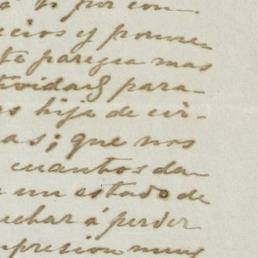 por con-
cios y porve-
te parezca mas
tividad para-
as hija de cir-
as; que nos
cuantos da-
e un estado de
uchar á perder
mpresion muy